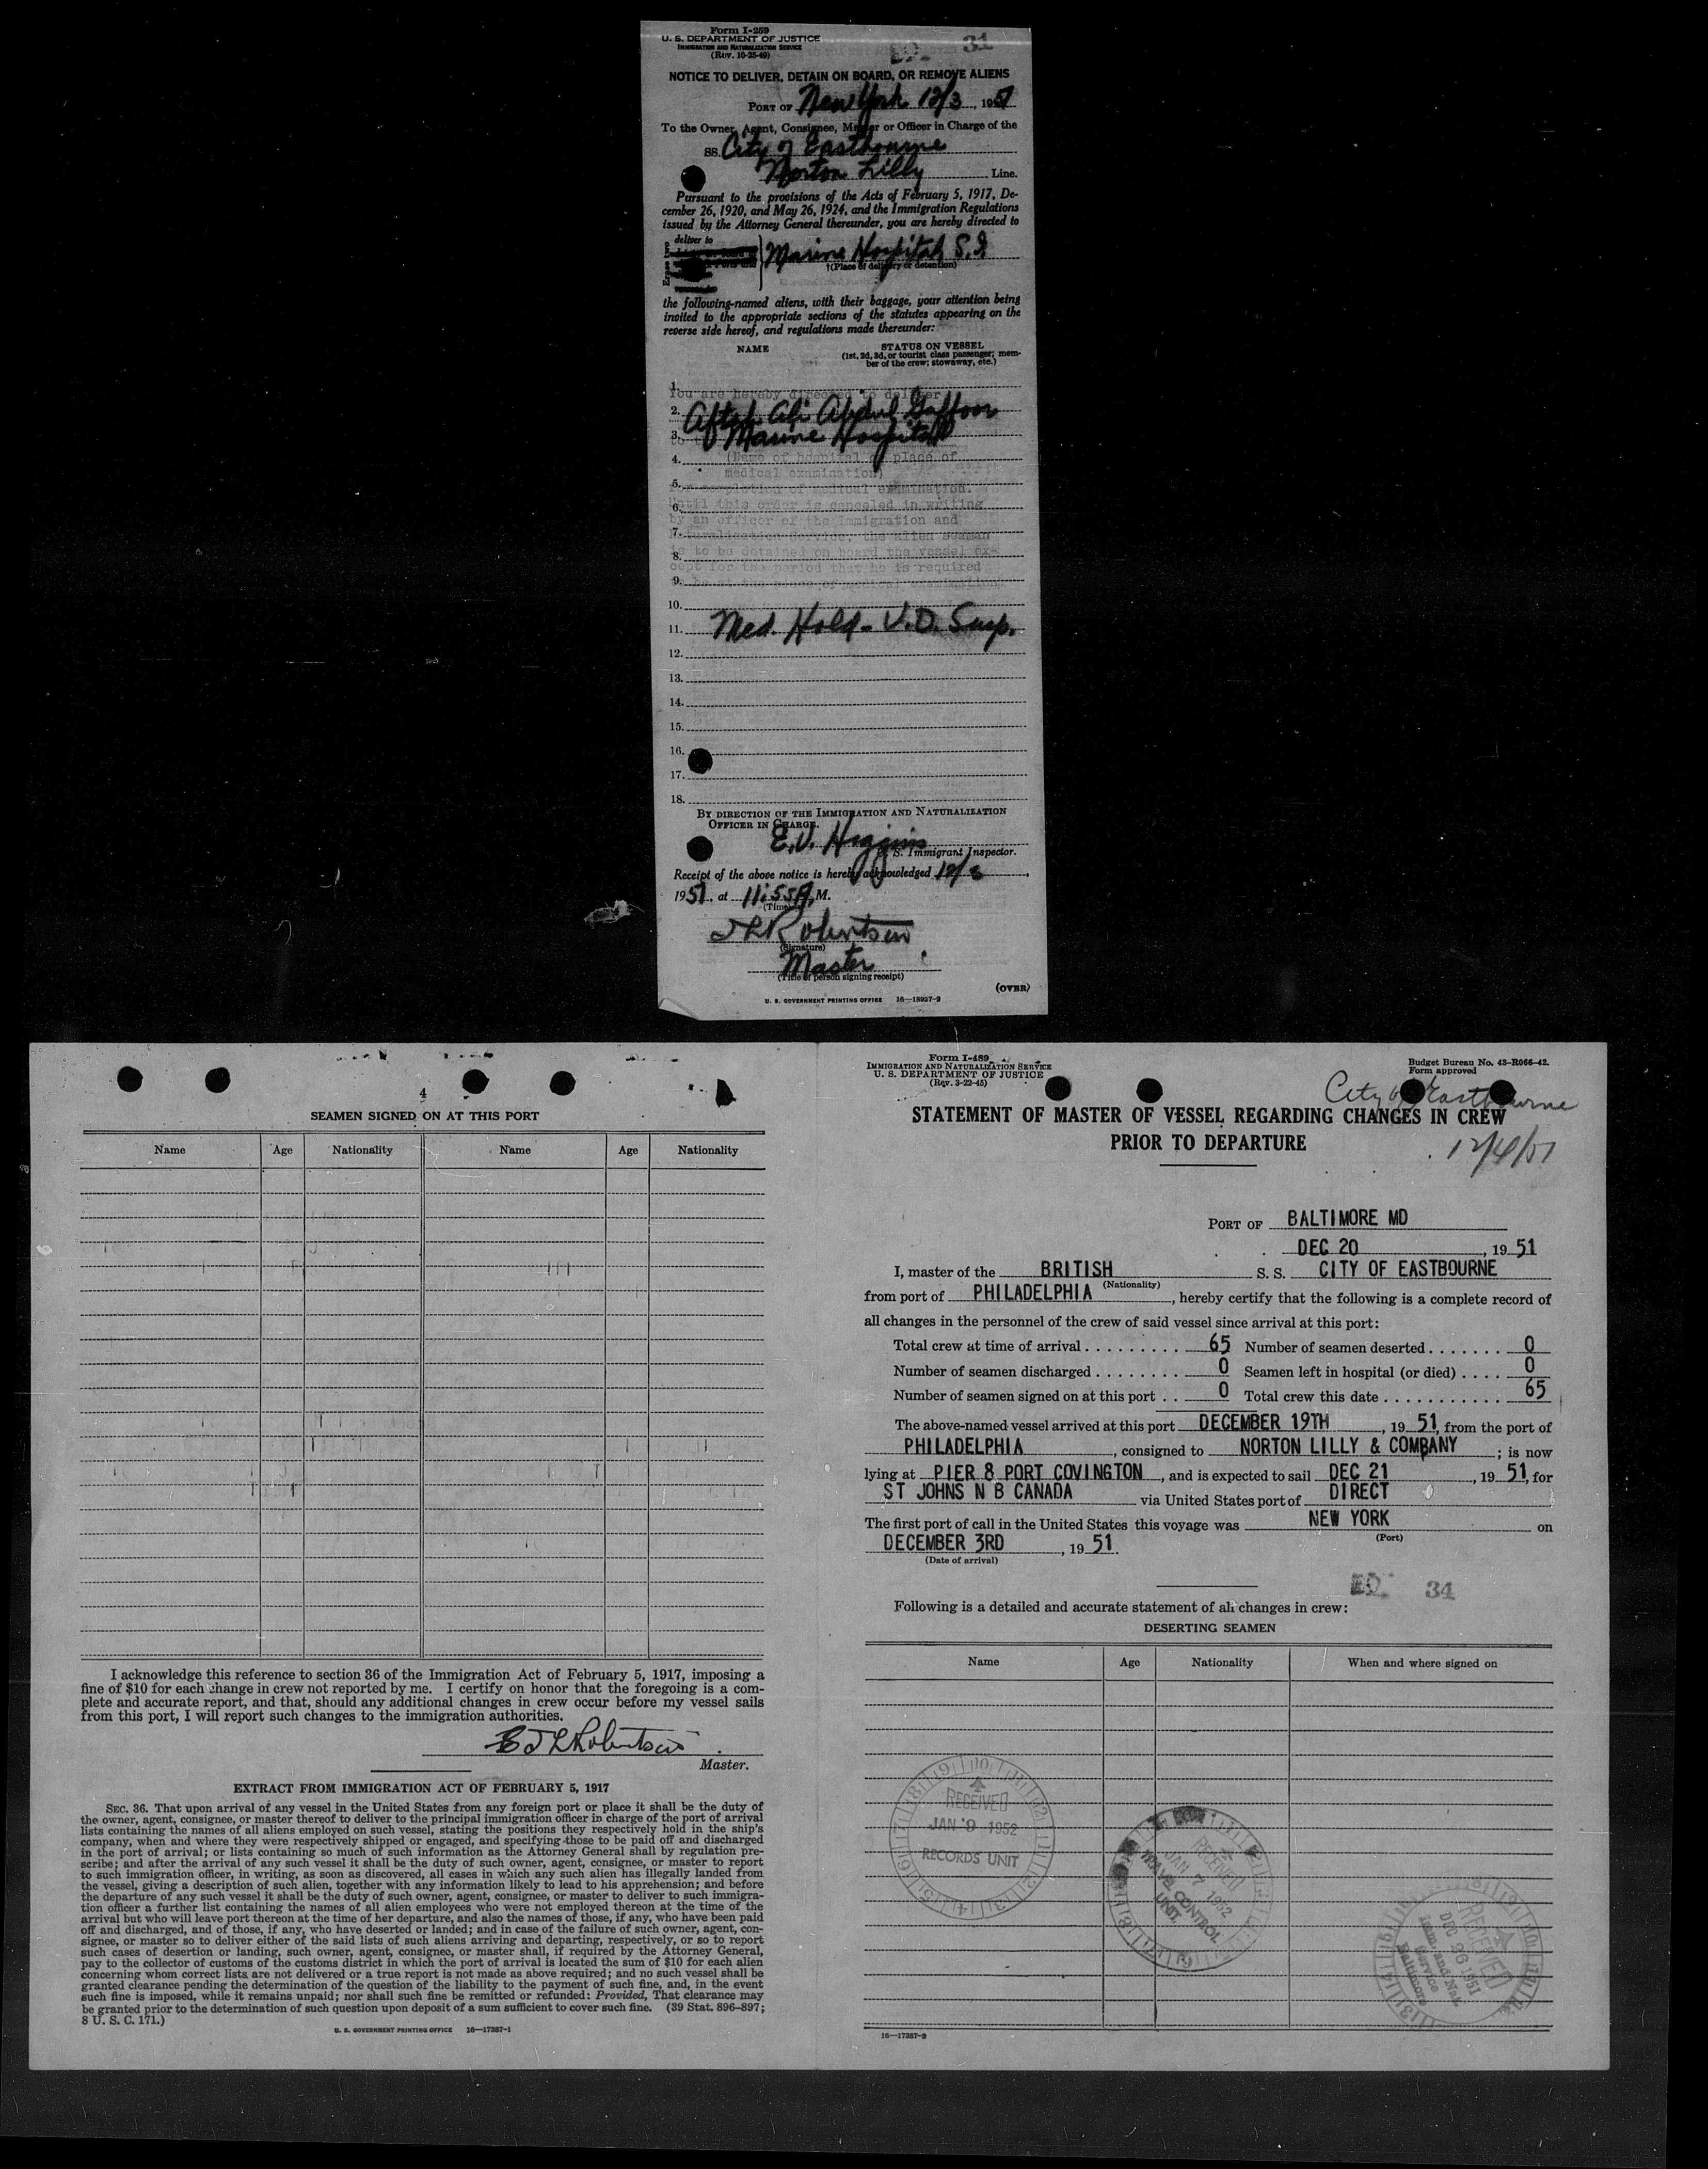 Form I-259
U. S. DEPARTMENT OF JUSTICE
IMMIGRATION AND NATURALIZATION SERVICE
(Rev. 10-25-49)
31
NOTICE TO DELIVER, DETAIN ON BOARD, OR REMOVE ALIENS
PORT OF New York 12/3, 1951
To the Owner, Agent, Consignee, Master or Officer in Charge of the
SS. City of Eastbourne
Norton Lilly Line.
Pursuant to the provisions of the Acts of February 5, 1917, De-
cember 26, 1920, and May 26, 1924, and the Immigration Regulations
issued by the Attorney General thereunder, you are hereby directed to
deliver to
Marine Hospital, S.I.
†(Place of delivery or detention)
the following-named aliens, with their baggage, your attention being
invited to the appropriate sections of the statutes appearing on the
reverse side hereof, and regulations made thereunder:
NAME STATUS ON VESSEL
(1st, 2d, 3d, or tourist class passenger; mem-
ber of the crew; stowaway, etc.)
1.
You are hereby directed to deliver
2. Aftab Ali Abdul Gaffoor
3. to Marine Hospital
4. (Name of hospital or place of
medical examination)
5. for completion of medical examination.
6. Until this order is canceled in writing
by an officer of the Immigration and
7. Naturalization Service, the alien seaman
8. is to be detained on board the vessel ex-
cept for the period that he is required
9.
10.
11. Med. Hold - V.D. Susp.
12.
13.
14.
15.
16.
17.
18.
BY DIRECTION OF THE IMMIGRATION AND NATURALIZATION
OFFICER IN CHARGE.
E.V. Higgins
U. S. Immigrant Inspector.
Receipt of the above notice is hereby acknowledged 12/3,
1951, at 11:55 A. M.
(Time)
J L Robertson
(Signature)
Master
(Title of person signing receipt)
(OVER)
U. S. GOVERNMENT PRINTING OFFICE 16—18937-2
4
SEAMEN SIGNED ON AT THIS PORT
Name Age Nationality Name Age Nationality
I acknowledge this reference to section 36 of the Immigration Act of February 5, 1917, imposing a
fine of $10 for each change in crew not reported by me. I certify on honor that the foregoing is a com-
plete and accurate report, and that, should any additional changes in crew occur before my vessel sails
from this port, I will report such changes to the immigration authorities.
J L Robertson
Master.
EXTRACT FROM IMMIGRATION ACT OF FEBRUARY 5, 1917
SEC. 36. That upon arrival of any vessel in the United States from any foreign port or place it shall be the duty of
the owner, agent, consignee, or master thereof to deliver to the principal immigration officer in charge of the port of arrival
lists containing the names of all aliens employed on such vessel, stating the positions they respectively hold in the ship's
company, when and where they were respectively shipped or engaged, and specifying those to be paid off and discharged
in the port of arrival; or lists containing so much of such information as the Attorney General shall by regulation pre-
scribe; and after the arrival of any such vessel it shall be the duty of such owner, agent, consignee, or master to report
to such immigration officer, in writing, as soon as discovered, all cases in which any such alien has illegally landed from
the vessel, giving a description of such alien, together with any information likely to lead to his apprehension; and before
the departure of any such vessel it shall be the duty of such owner, agent, consignee, or master to deliver to such immigra-
tion officer a further list containing the names of all alien employees who were not employed thereon at the time of the
arrival but who will leave port thereon at the time of her departure, and also the names of those, if any, who have been paid
off and discharged, and of those, if any, who have deserted or landed; and in case of the failure of such owner, agent, con-
signee, or master so to deliver either of the said lists of such aliens arriving and departing, respectively, or so to report
such cases of desertion or landing, such owner, agent, consignee, or master shall, if required by the Attorney General,
pay to the collector of customs of the customs district in which the port of arrival is located the sum of $10 for each alien
concerning whom correct lists are not delivered or a true report is not made as above required; and no such vessel shall be
granted clearance pending the determination of the question of the liability to the payment of such fine, and, in the event
such fine is imposed, while it remains unpaid; nor shall such fine be remitted or refunded: Provided, That clearance may
be granted prior to the determination of such question upon deposit of a sum sufficient to cover such fine. (39 Stat. 896-897;
8 U. S. C. 171.)
U. S. GOVERNMENT PRINTING OFFICE 16—17387-1
Form I-489
IMMIGRATION AND NATURALIZATION SERVICE
U. S. DEPARTMENT OF JUSTICE
(Rev. 3-22-45)
Budget Bureau No. 43-R066-42.
Form approved
City of Eastbourne
STATEMENT OF MASTER OF VESSEL REGARDING CHANGES IN CREW
PRIOR TO DEPARTURE
12/4/51
PORT OF BALTIMORE MD
DEC 20, 1951
I, master of the BRITISH S. S. CITY OF EASTBOURNE
(Nationality)
from port of PHILADELPHIA, hereby certify that the following is a complete record of
all changes in the personnel of the crew of said vessel since arrival at this port:
Total crew at time of arrival . . . . . . . . . 65 Number of seamen deserted . . . . . . . 0
Number of seamen discharged . . . . . . . . 0 Seamen left in hospital (or died) . . . . 0
Number of seamen signed on at this port . . 0 Total crew this date . . . . . . . . . . . 65
The above-named vessel arrived at this port DECEMBER 19TH, 1951, from the port of
PHILADELPHIA, consigned to NORTON LILLY & COMPANY; is now
lying at PIER 8 PORT COVINGTON, and is expected to sail DEC 21, 1951, for
ST JOHNS N B CANADA via United States port of DIRECT
The first port of call in the United States this voyage was NEW YORK on
(Port)
DECEMBER 3RD, 1951.
(Date of arrival)
34
Following is a detailed and accurate statement of all changes in crew:
DESERTING SEAMEN
Name Age Nationality When and where signed on
RECEIVED
JAN 9 1952
RECORDS UNIT
RECEIVED
JAN 7 1952
TRAVEL CONTROL
UNIT
RECEIVED
DEC 26 1951
Imm and Nat.
Service
Baltimore
16—17387-2